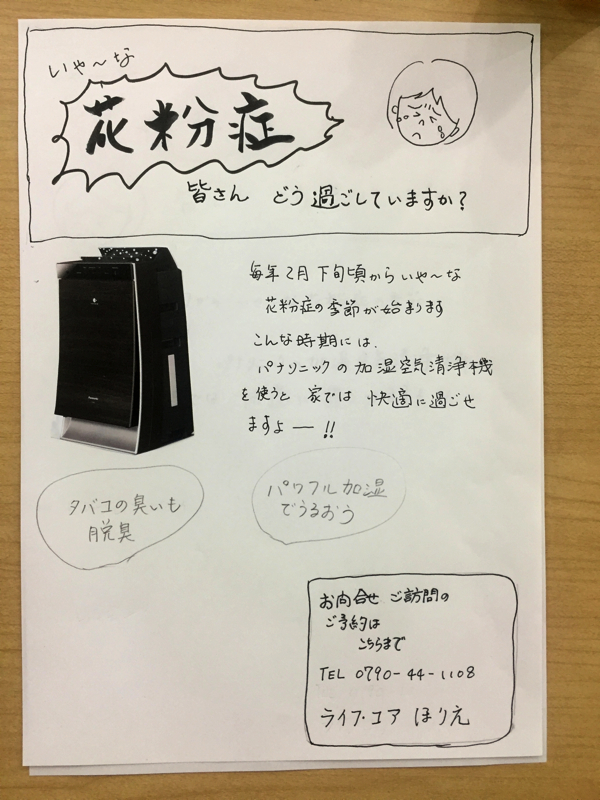 いや〜な
花粉症
皆さん どう過ごしていますか?
毎年2月下旬頃からいや〜な
花粉症の季節が始まります
こんな時期には、
パナソニックの加湿空気清浄機
を使うと 家では 快適に過ごせ
ますよー!!
Panasonic
タバコの臭いも
脱臭
パワフル加湿
でうるおう
お問合せ ご訪問の
ご予約は
こちらまで
TEL 0790-44-1108
ライフ・コア ほりえ